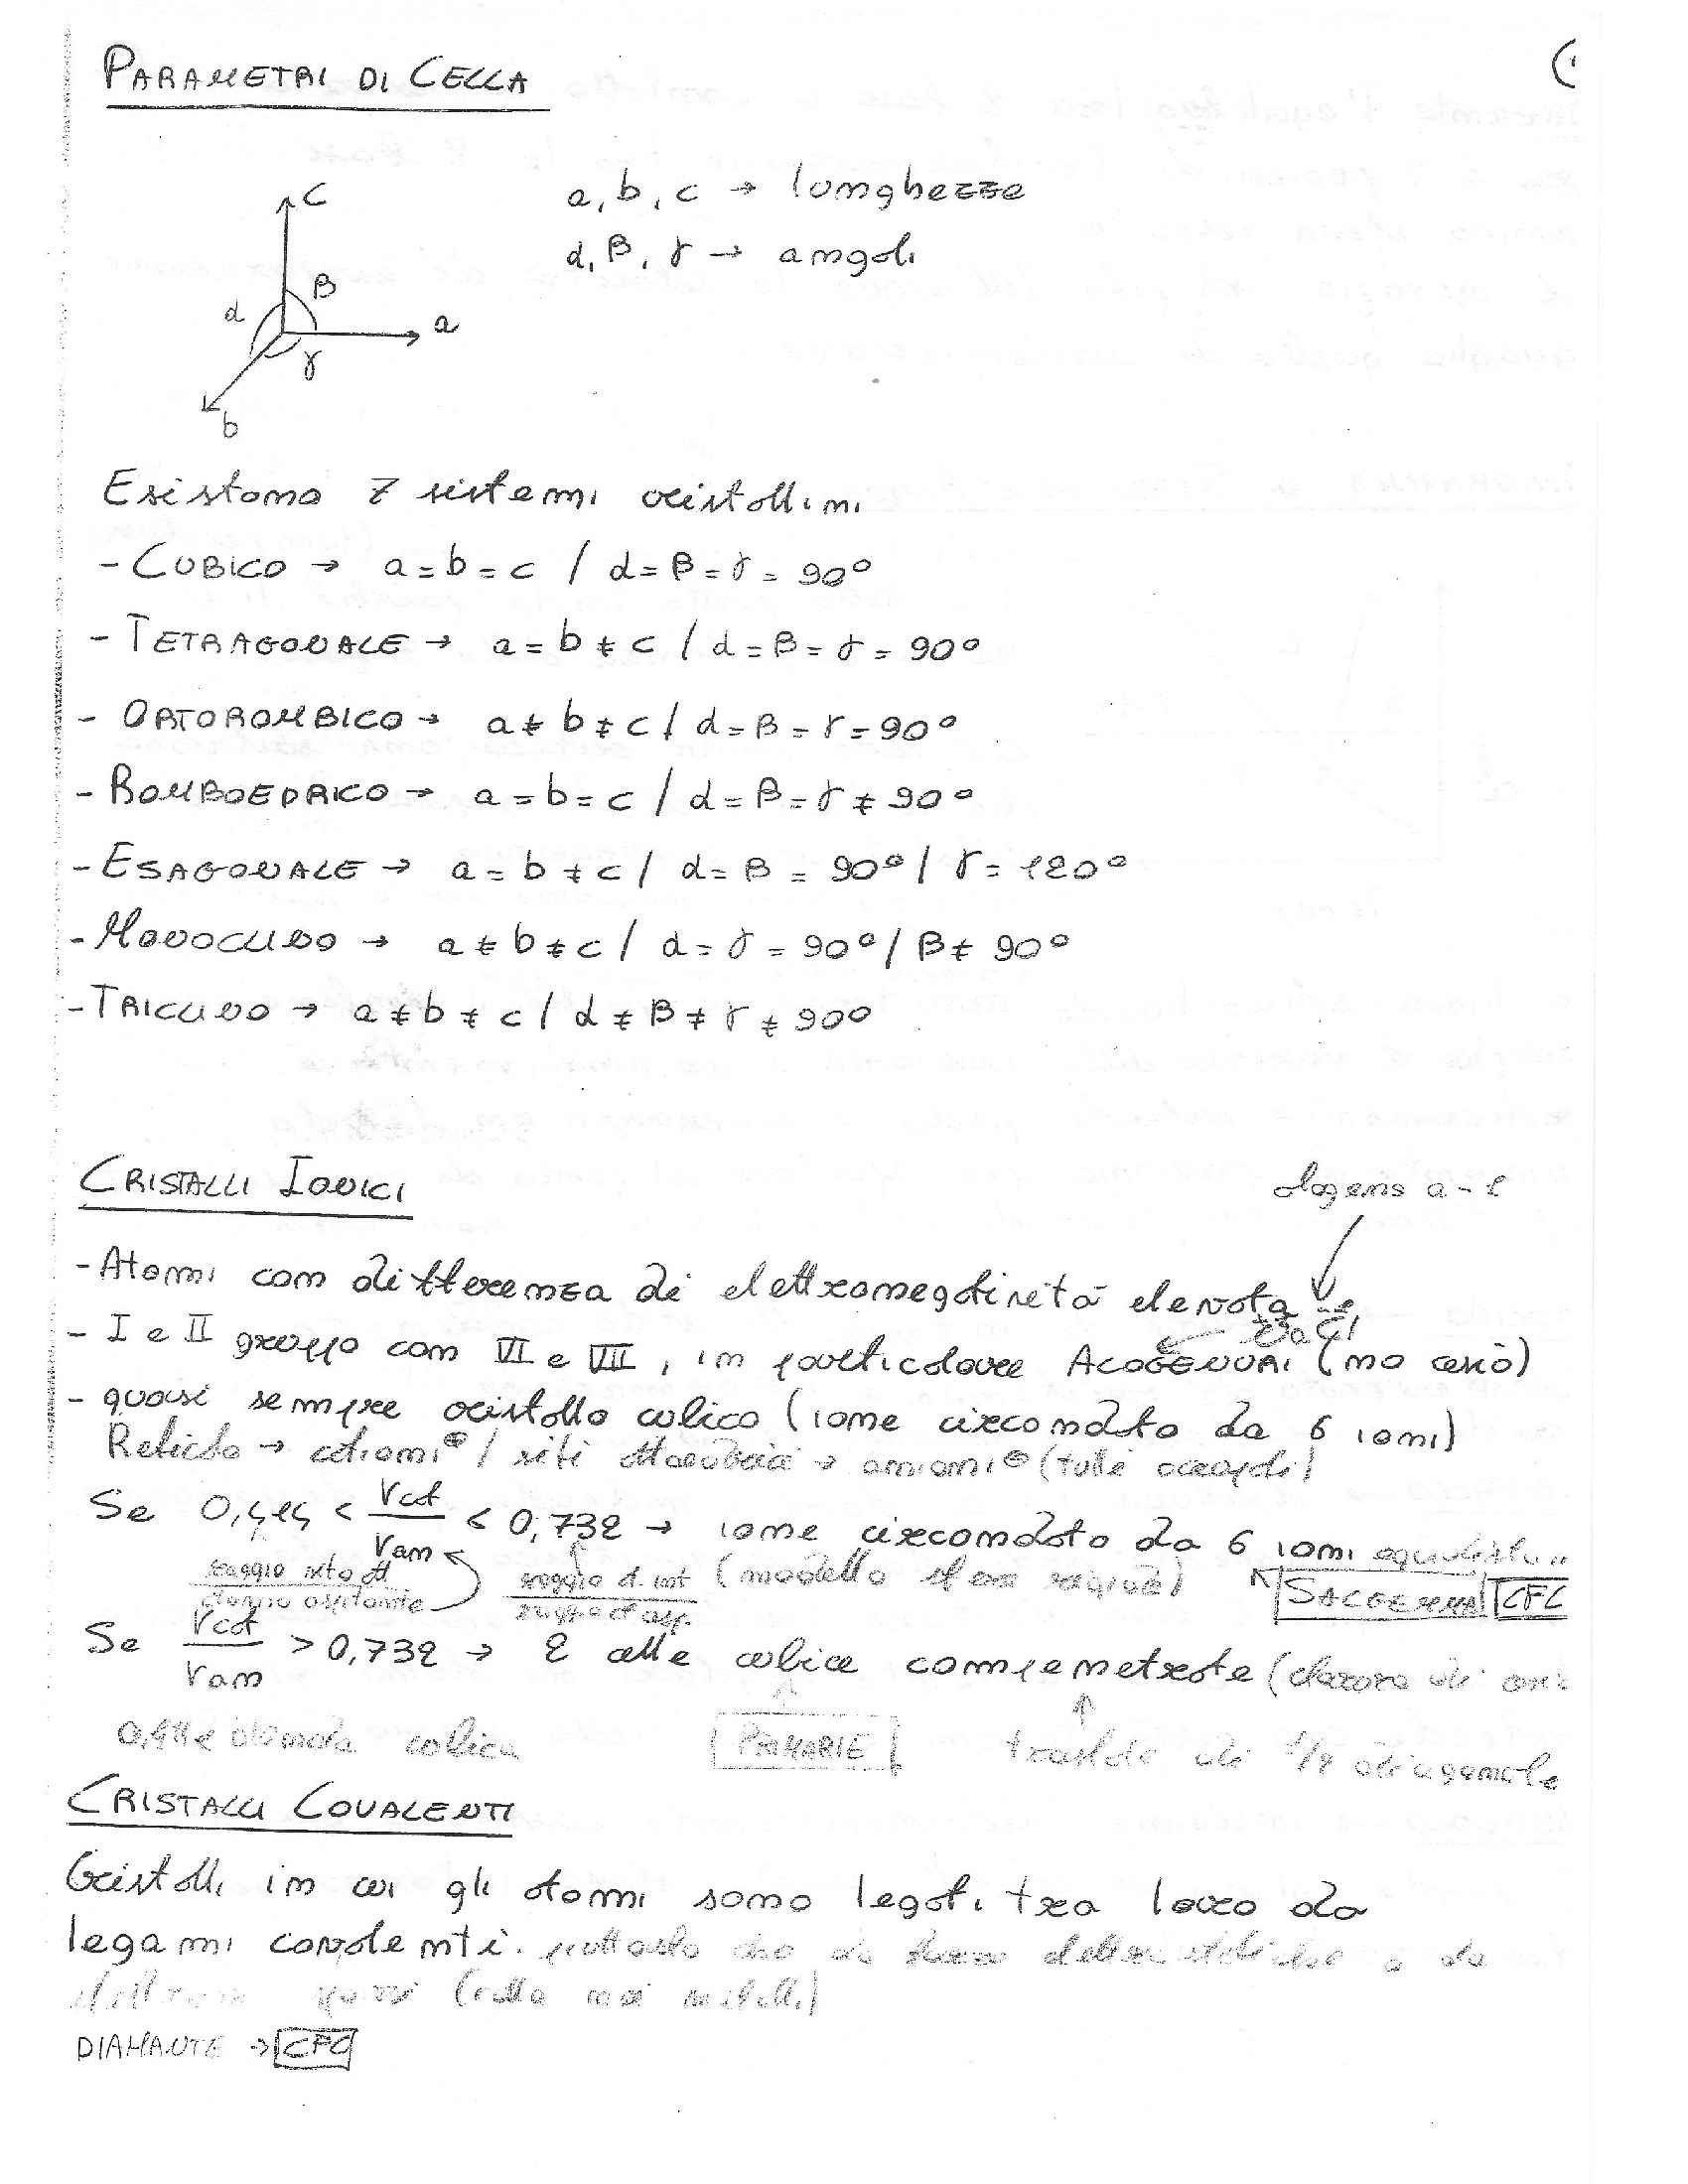 PARAMETRI DI CELLA
(1
C
a, b, c → lunghezze
α, β, γ → angoli
β
α
a
γ
b
Esistono 7 sistemi cristallini
- CUBICO → a = b = c / α = β = γ = 90°
- TETRAGONALE → a = b ≠ c / α = β = γ = 90°
- ORTOROMBICO → a ≠ b ≠ c / α = β = γ = 90°
- ROMBOEDRICO → a = b = c / α = β = γ ≠ 90°
- ESAGONALE → a = b ≠ c / α = β = 90° / γ = 120°
- MONOCLINO → a ≠ b ≠ c / α = γ = 90° / β ≠ 90°
- TRICLINO → a ≠ b ≠ c / α ≠ β ≠ γ ≠ 90°
CRISTALLI IONICI
alogeno a -1
- Atomi con differenza di elettronegatività elevata
NaCl
- I e II gruppo con VI e VII, in particolare ALOGENURI (no cesio)
- quasi sempre cristallo cubico (ione circondato da 6 ioni)
Reticolo → cationi⊕ / siti ottaedrici → anioni⊖ (tutti occupati)
Se 0,414 < rcat/ran ≤ 0,732 → ione circondato da 6 ioni
raggio sito ott / raggio ospitante
raggio d. int / raggio d. osp.
(modello sfere rigide)
SALGEMMA CFC
Se rcat/ran > 0,732 → 2 celle cubiche compenetrate (cloruro di
cubica
PRIMARIE
traslate di 1/2 diagonale
CRISTALLI COVALENTI
Cristalli in cui gli atomi sono legati tra loro da
legami covalenti. piuttosto che da forze elettrostatiche o da
DIAMANTE → CFC